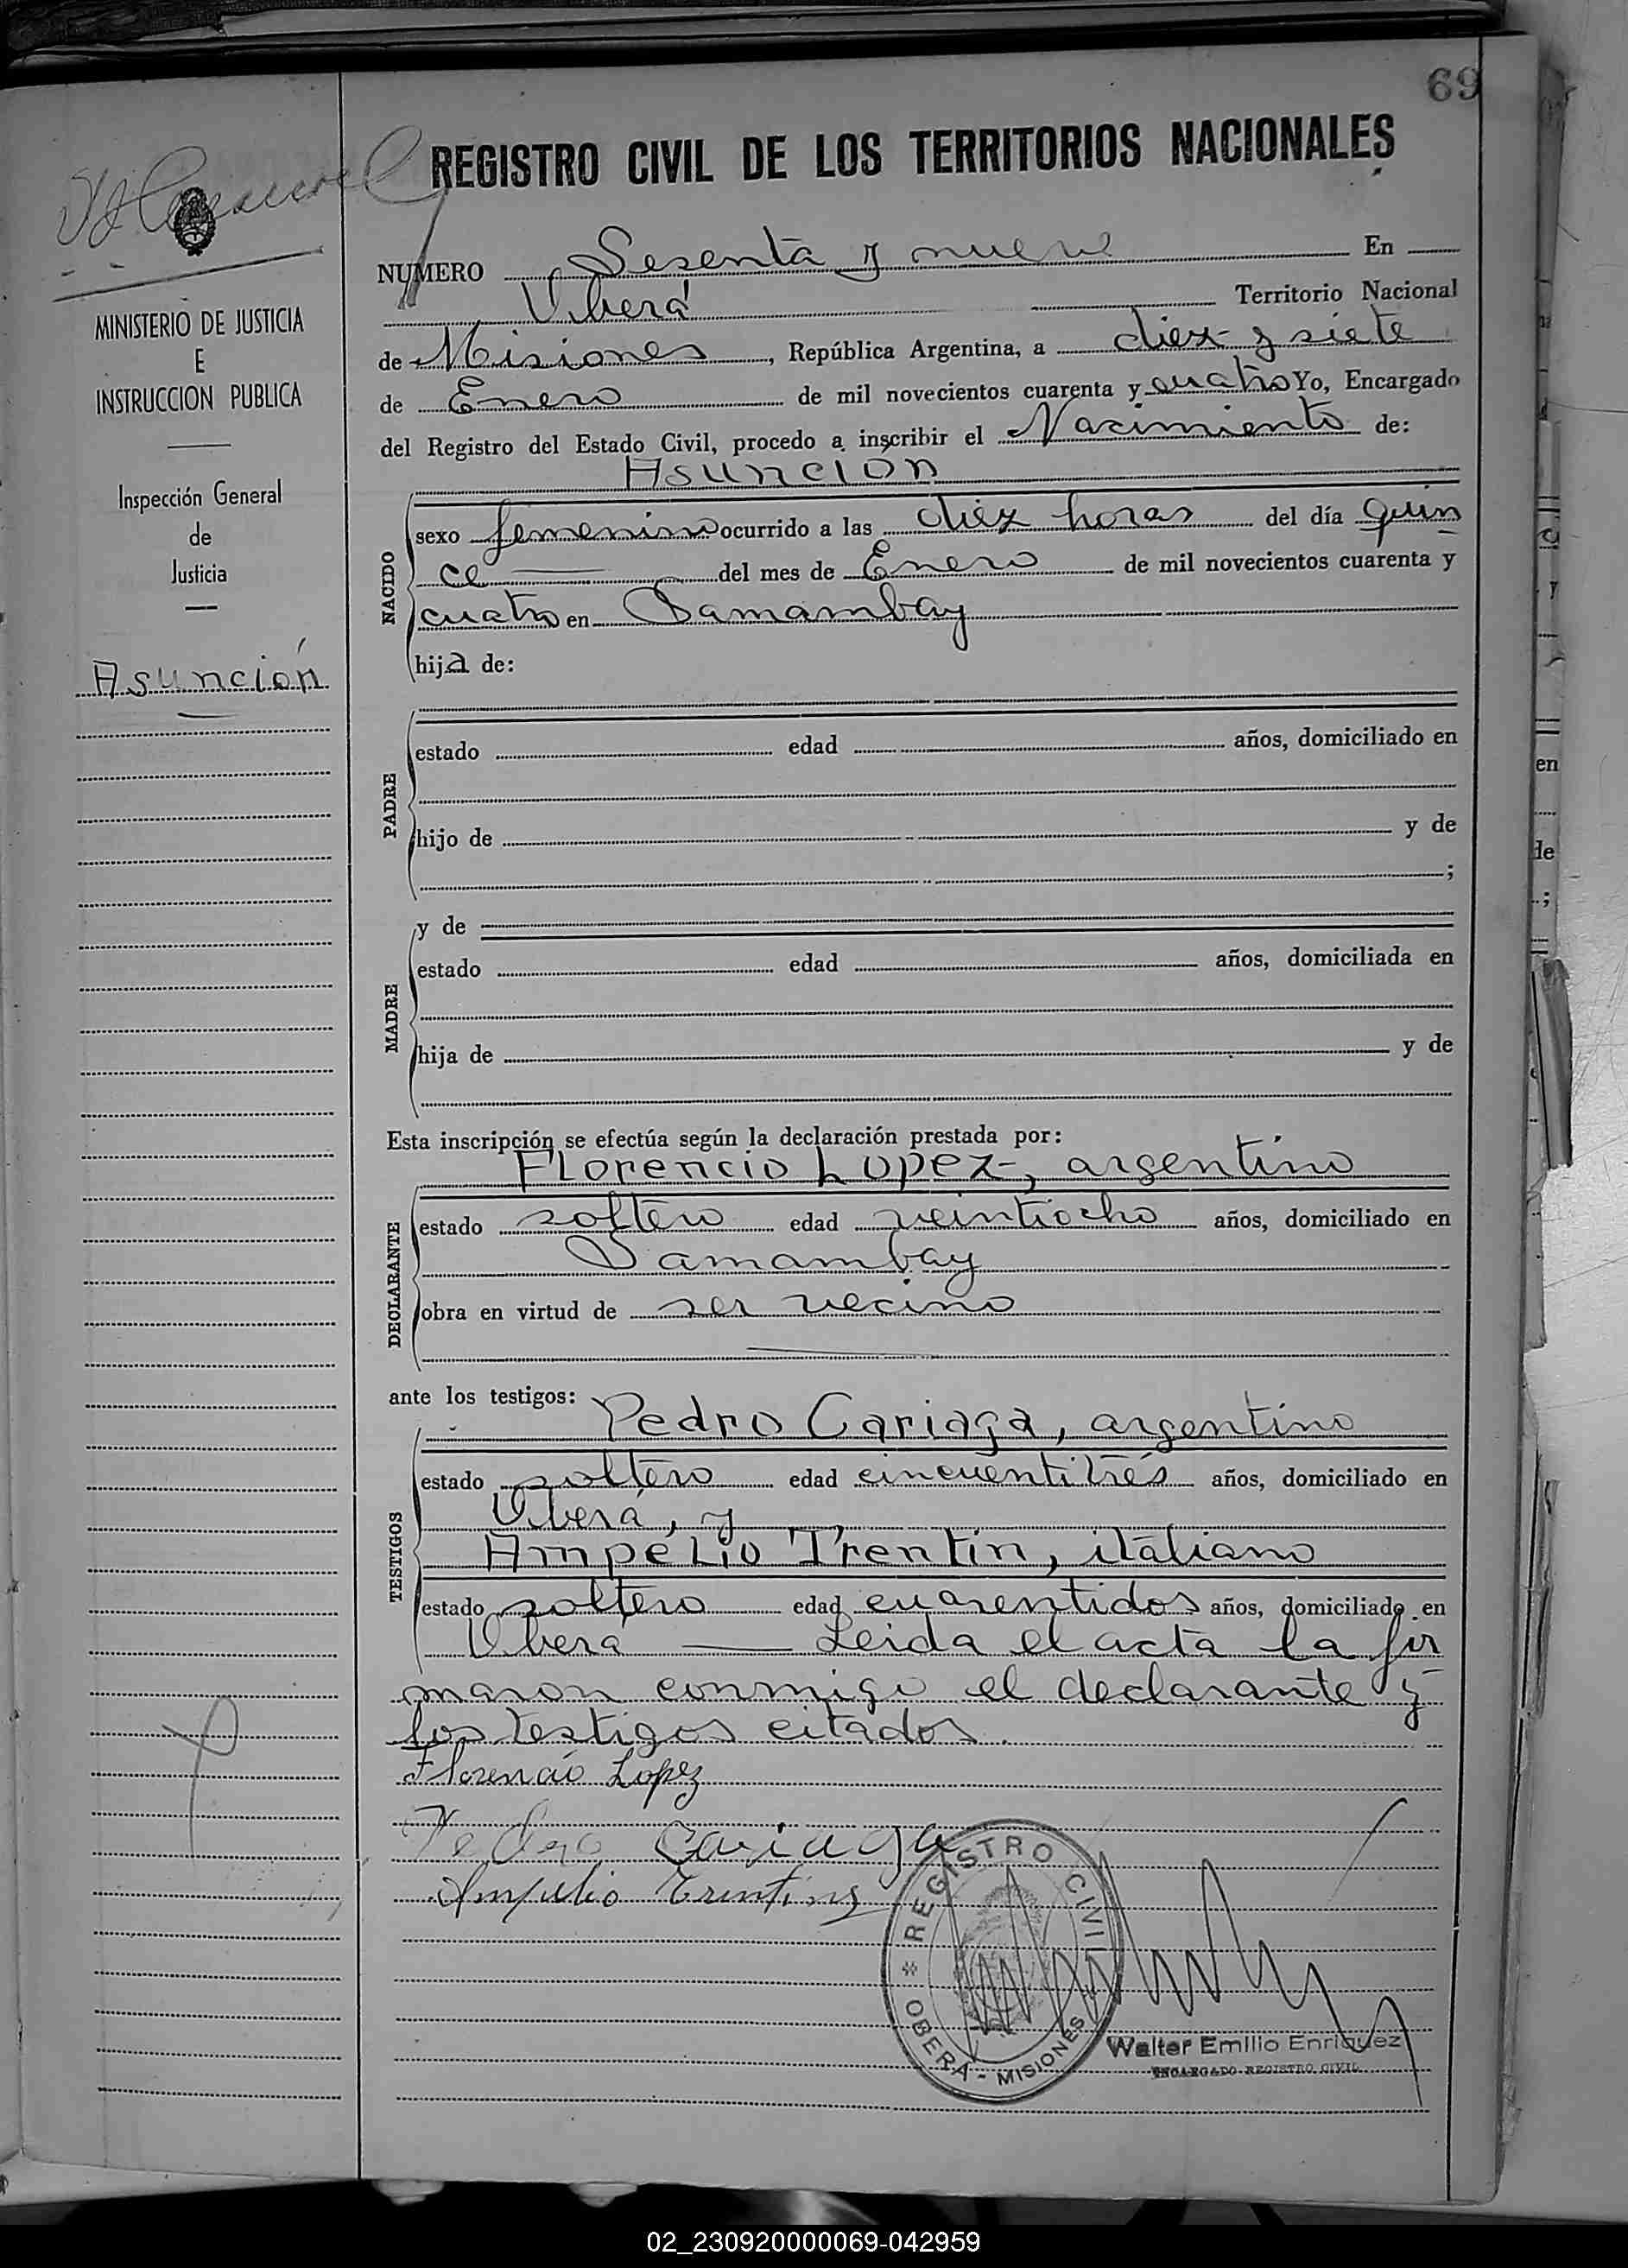 69
REGISTRO CIVIL DE LOS TERRITORIOS NACIONALES
NUMERO Sesenta y nueve En
Oberá Territorio Nacional
de Misiones, República Argentina, a diez y siete
de Enero de mil novecientos cuarenta y cuatro Yo, Encargado
del Registro del Estado Civil, procedo a inscribir el Nacimiento de:
Asunción
NACIDO
sexo femenino ocurrido a las diez horas del día quin
ce del mes de Enero de mil novecientos cuarenta y
cuatro en Samambay
hija de:
PADRE
estado edad años, domiciliado en
hijo de y de
;
MADRE
y de
estado edad años, domiciliada en
hija de y de
Esta inscripción se efectúa según la declaración prestada por:
DECLARANTE
Florencio Lopez, argentino
estado soltero edad veintiocho años, domiciliado en
Samambay
obra en virtud de ser vecino
ante los testigos:
TESTIGOS
Pedro Cariaga, argentino
estado soltero edad cincuentitrés años, domiciliado en
Oberá, y
Ampelio Trentin, italiano
estado soltero edad cuarentidos años, domiciliado en
Oberá Leida el acta la fir
maron conmigo el declarante y
los testigos citados.
Florencio Lopez
Pedro Cariaga
Ampelio Trentin
REGISTRO CIVIL
OBERA - MISIONES
Walter Emilio Enriquez
ENCARGADO REGISTRO CIVIL
MINISTERIO DE JUSTICIA
E
INSTRUCCION PUBLICA
Inspección General
de
Justicia
Asunción
en
de
;
02_230920000069-042959